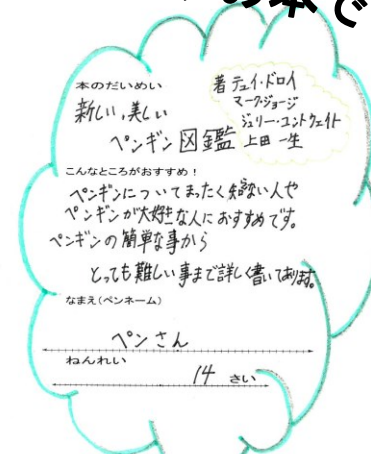 本で
本のだいめい
新しい,美しい
ペンギン図鑑
著 テュイ・ドロイ
マーク・ジョーンズ
ジュリー・コーンスウェイト
上田一生
こんなところがおすすめ!
ペンギンについてまったく知らない人や
ペンギンが大好きな人におすすめです。
ペンギンの簡単な事から
とっても難しい事まで詳しく書いてあります。
なまえ(ペンネーム)
ペンさん
ねんれい
14 さい